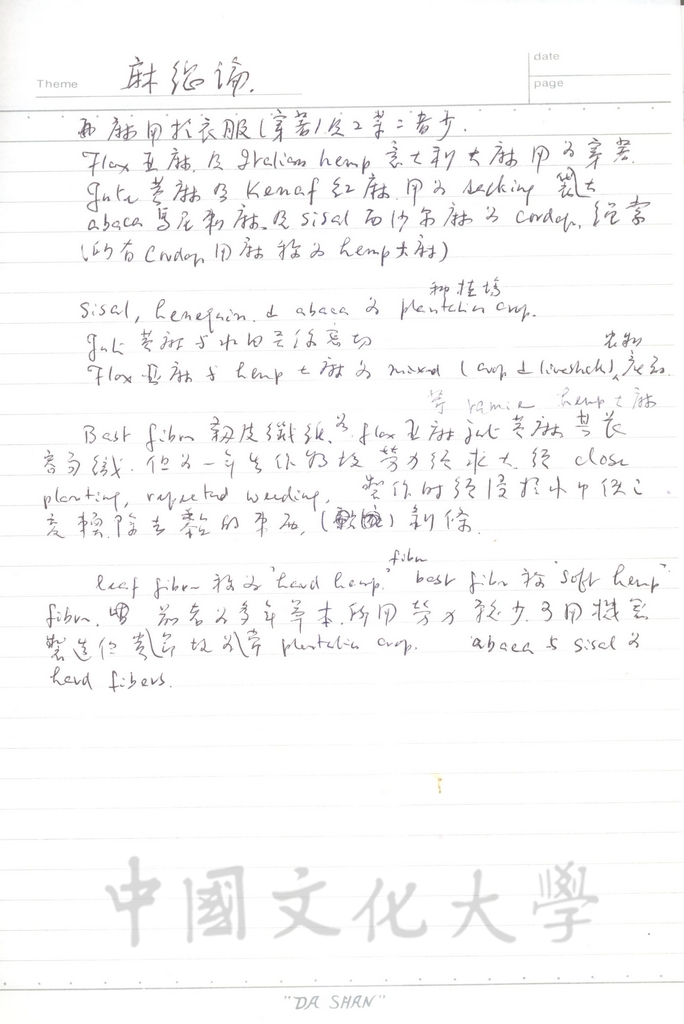 Theme 麻總論.
date
page
麻用於衣服(穿著)及工業二者少.
Flax 亞麻 及 Italian hemp 意大利大麻 用為穿著
Jute 黃麻 及 Kenaf 紅麻 用為 sacking 製袋
abaca 馬尼剌麻 及 sisal 西沙尔麻 為 cordage, 繩索
(所有 Cordage 用麻 称為 hemp 大麻)
種植場
sisal, henequin, & abaca 為 plantation crop.
Jute 黃麻 与水田 密切
農物
Flax 亞麻 与 hemp 大麻 為 mixed (crop & livestock)
等 ramie hemp 大麻
Bast fiber 韌皮纖維 為 flax 亞麻 jute 黃麻 其
但為一年生作物故勞力 求大 須 close
planting, repeated weeding, 製作時須浸於水中
除去 的東西, 剝
fiber
leaf fiber 称為 "hard hemp." bast fiber 称 "soft hemp"
fiber. 前者為多年草本. 所用勞力較少. 可用機器
製造但 故 常 plantation crop. abaca 与 sisal 為
hard fibers.
中國文化大學
"DA SHAN"